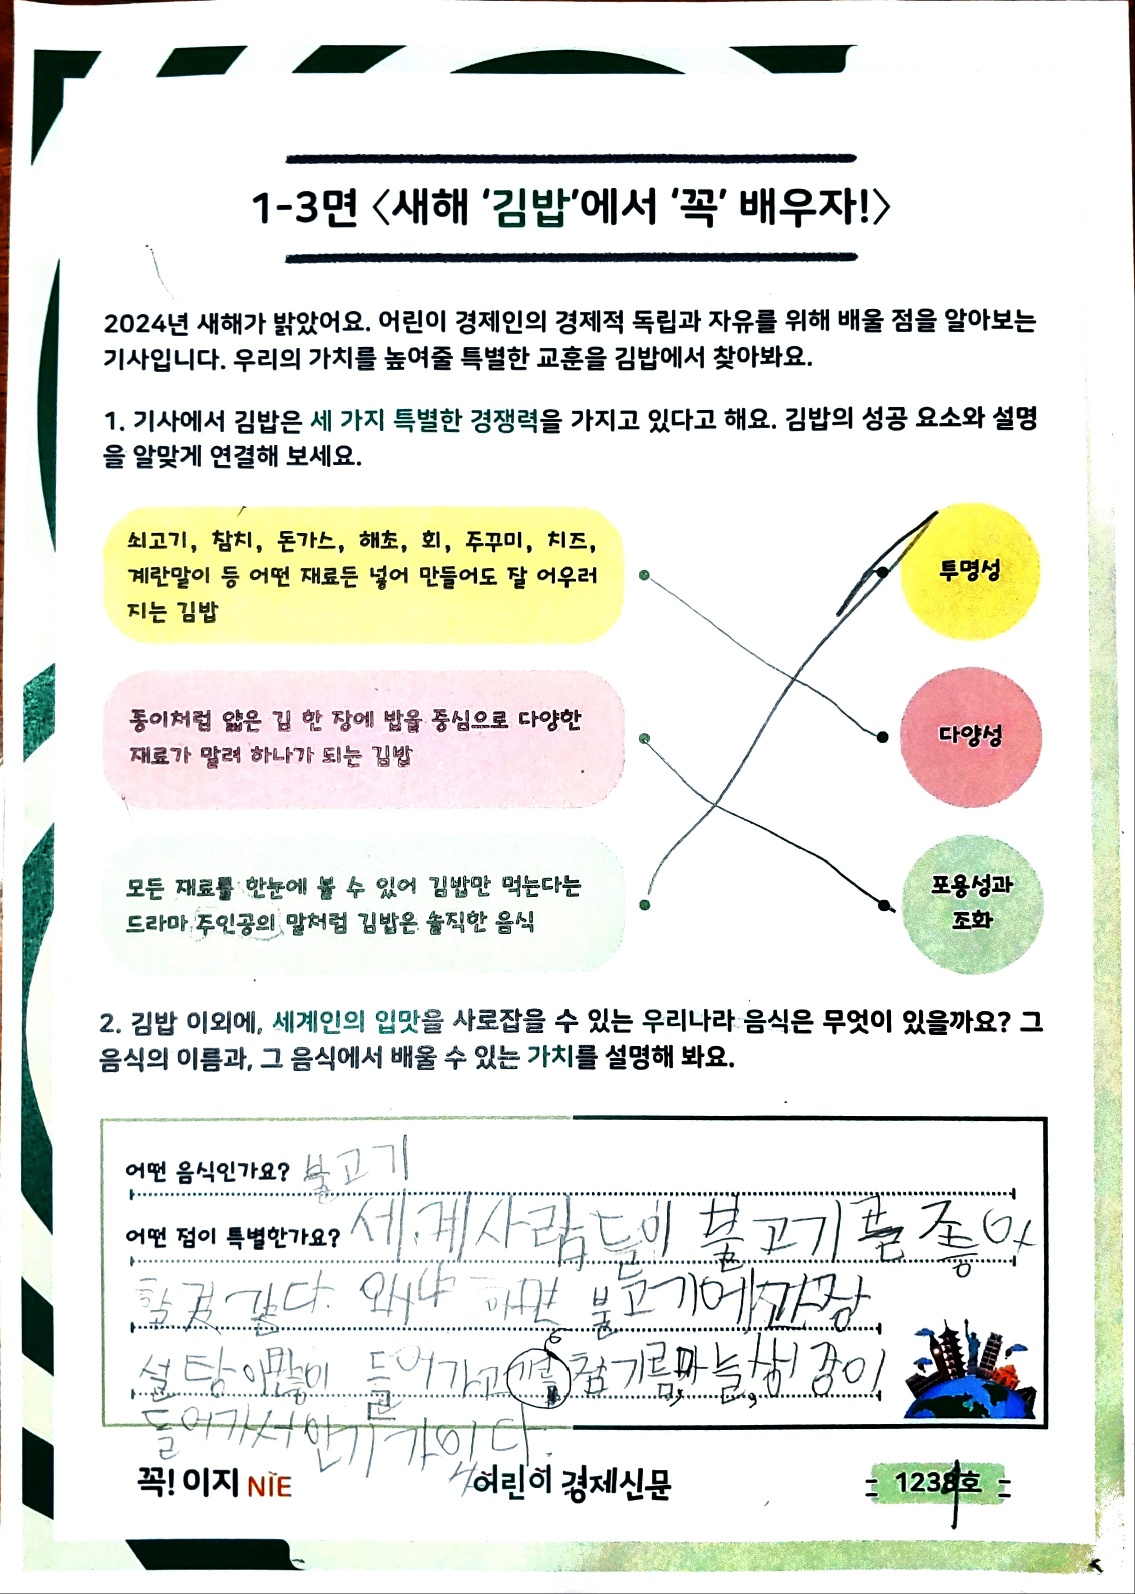 1-3면 <새해 '김밥'에서 '꼭' 배우자!>
2024년 새해가 밝았어요. 어린이 경제인의 경제적 독립과 자유를 위해 배울 점을 알아보는
기사입니다. 우리의 가치를 높여줄 특별한 교훈을 김밥에서 찾아봐요.
1. 기사에서 김밥은 세 가지 특별한 경쟁력을 가지고 있다고 해요. 김밥의 성공 요소와 설명
을 알맞게 연결해 보세요.
쇠고기, 참치, 돈가스, 해초, 회, 주꾸미, 치즈,
계란말이 등 어떤 재료든 넣어 만들어도 잘 어우러
지는 김밥
투명성
종이처럼 얇은 김 한 장에 밥을 중심으로 다양한
재료가 말려 하나가 되는 김밥
다양성
모든 재료를 한눈에 볼 수 있어 김밥만 먹는다는
드라마 주인공의 말처럼 김밥은 솔직한 음식
포용성과
조화
2. 김밥 이외에, 세계인의 입맛을 사로잡을 수 있는 우리나라 음식은 무엇이 있을까요? 그
음식의 이름과, 그 음식에서 배울 수 있는 가치를 설명해 봐요.
어떤 음식인가요? 불고기
어떤 점이 특별한가요? 세계 사람들이 불고기를 좋아
할것 같다. 왜냐 하면 불고기에 간장
설탕이 많이 들어가고 참기름, 마늘, 생강이
들어가서 인기가 있다.
꼭! 이지 NIE
어린이 경제신문
1239호